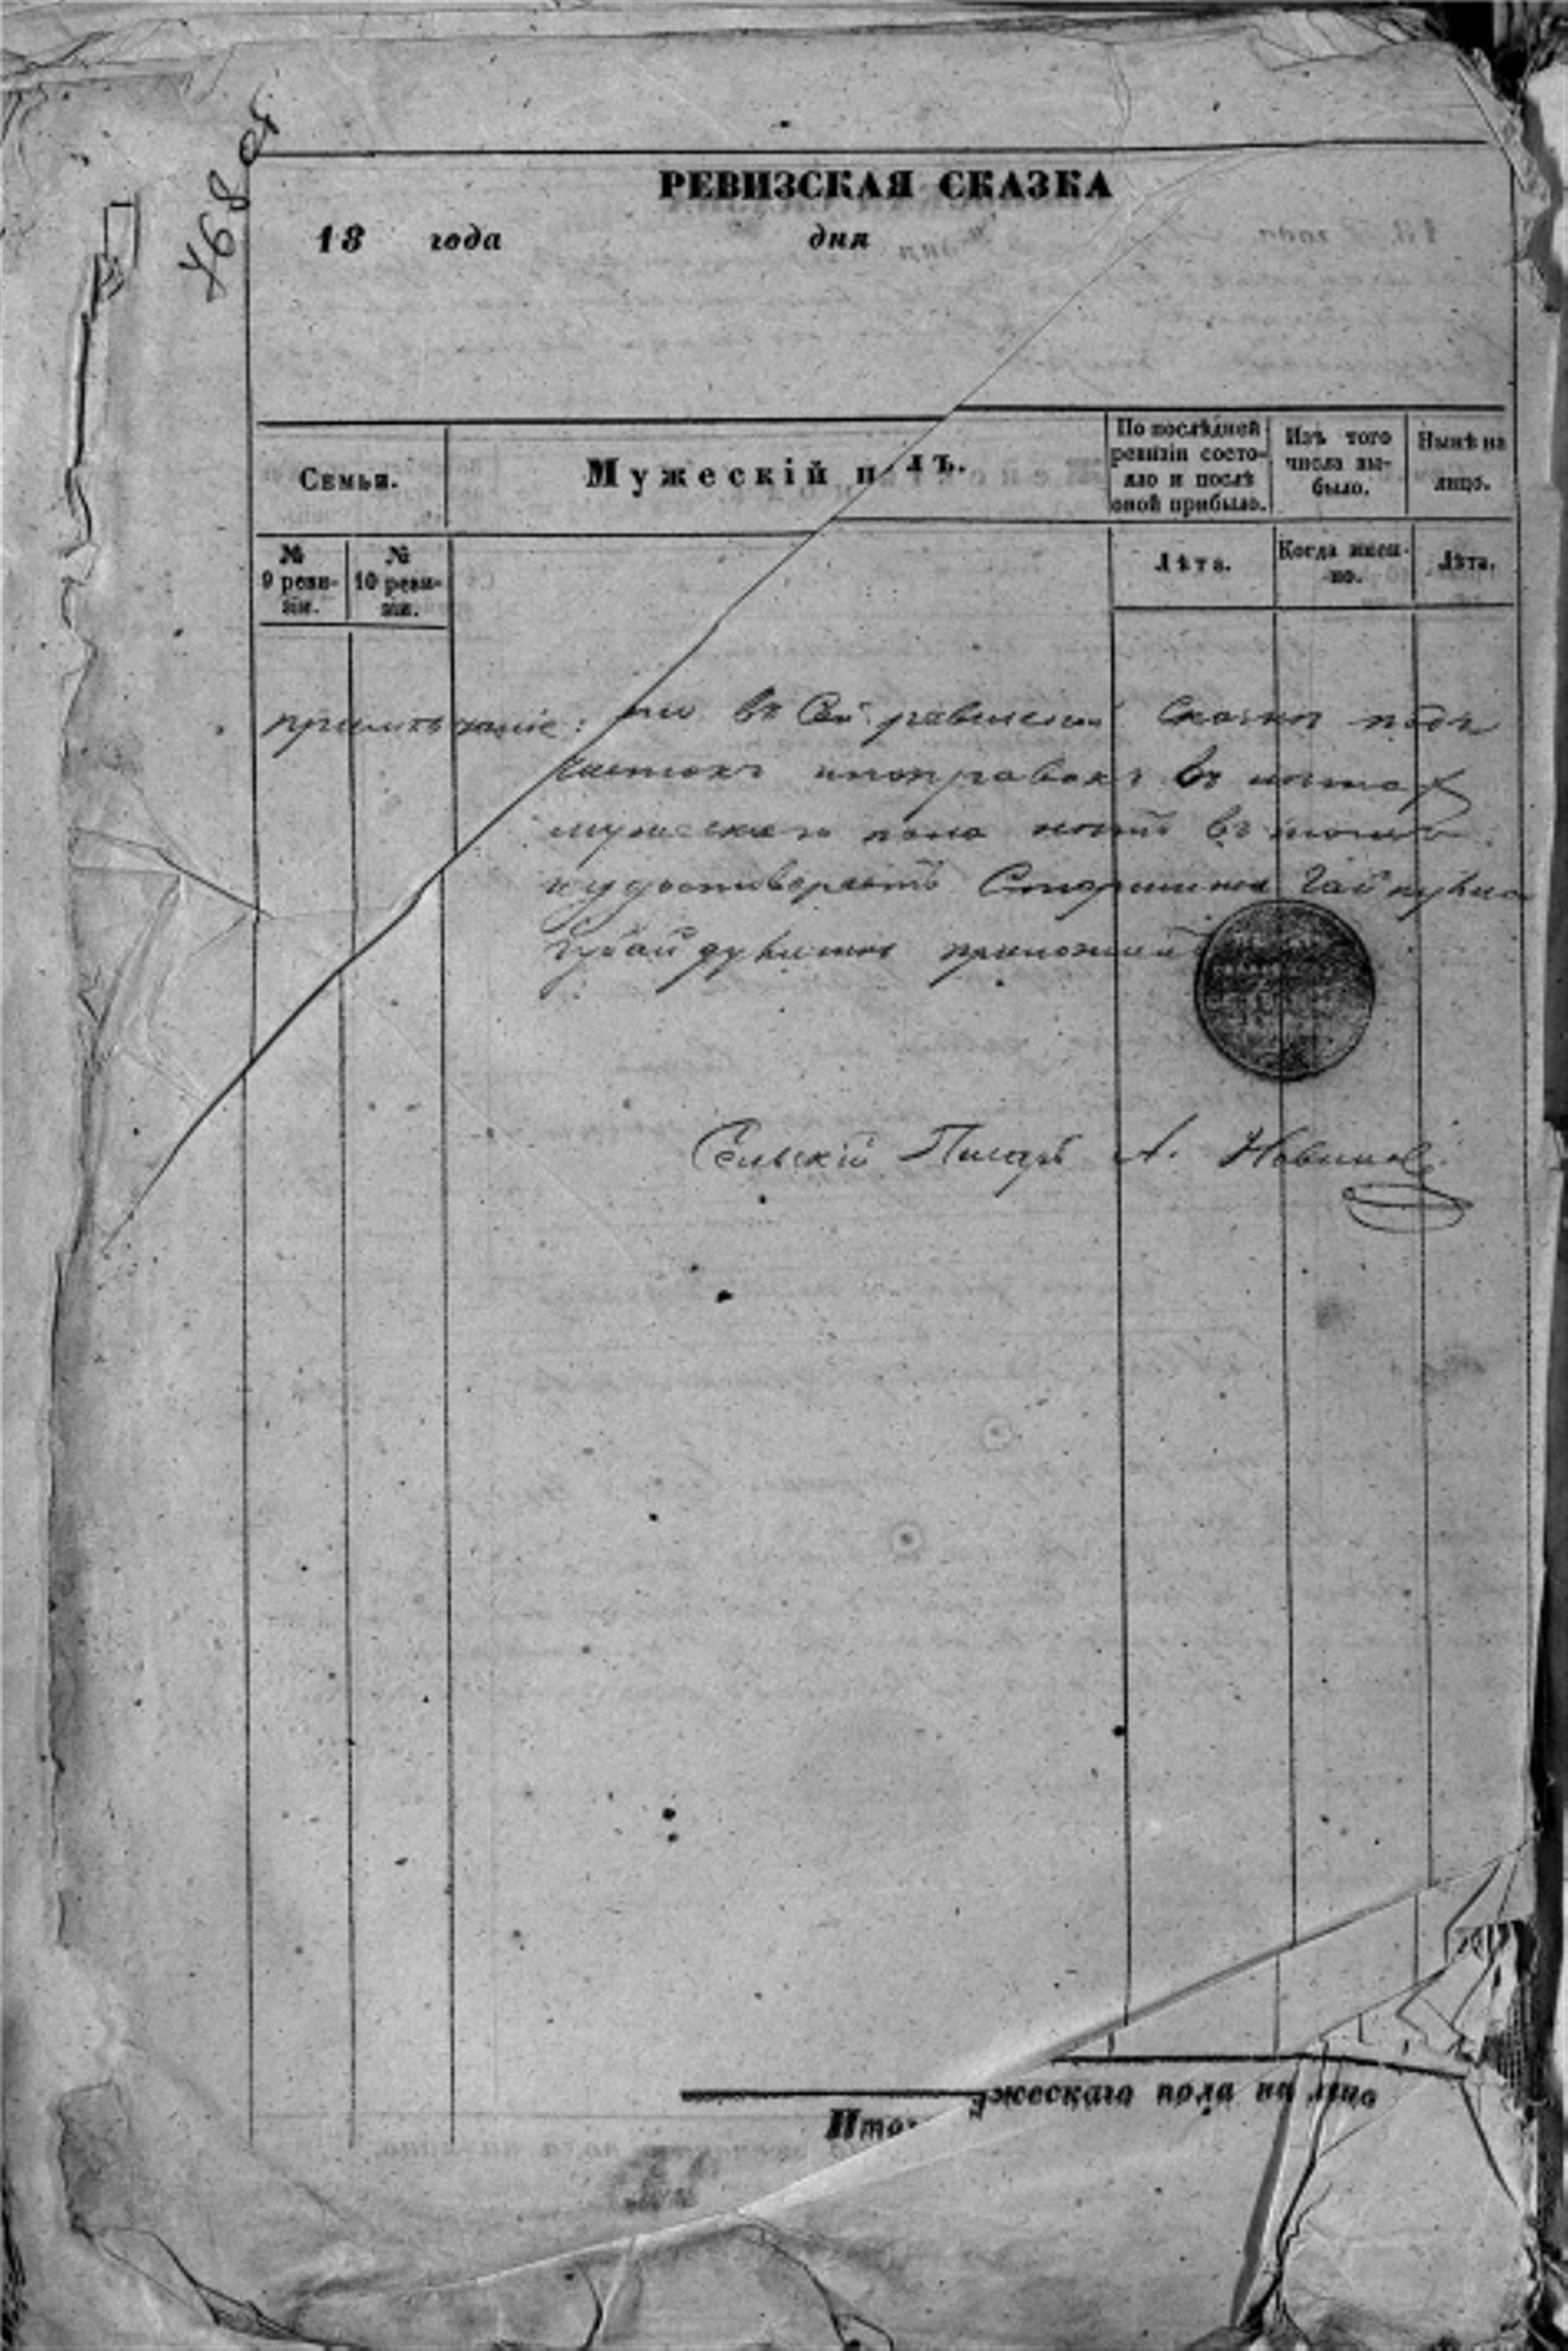 468 об
РЕВИЗСКАЯ СКАЗКА
18 года дня
Семьи.
Мужескій п лъ.
По последней ревизіи состо-
яло и послѣ
оной прибыло.
Изъ того
числа вы-
было.
Нынѣ на
лицо.
№
9 реви-
зіи.
№
10 реви-
зіи.
Лѣта.
Когда имен-
но.
Лѣта.
примѣчаніе: что въ сей ревизской сказки подъ
чистокъ и поправокъ въ
мужескаго пола нѣтъ въ томъ
и удостоверяетъ Старшина
приложилъ
Сельскій Писарь А. Новиковъ
Итог
ужескаго пола на лицо